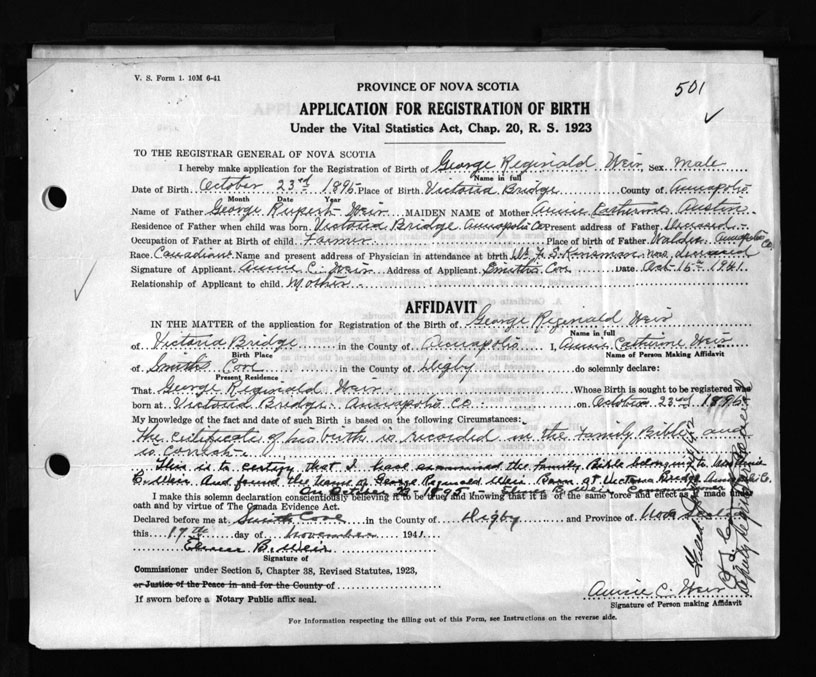 V. S. Form 1. 10M 6-41
501
PROVINCE OF NOVA SCOTIA
APPLICATION FOR REGISTRATION OF BIRTH
Under the Vital Statistics Act, Chap. 20, R. S. 1923
TO THE REGISTRAR GENERAL OF NOVA SCOTIA
I hereby make application for the Registration of Birth of George Reginald Weir Sex Male
Name in full
Date of Birth October 23rd 1895 Place of Birth Victoria Bridge County of Annapolis
Month Date Year
Name of Father George Rupert Weir MAIDEN NAME of Mother Annie Catherine Austin
Residence of Father when child was born Victoria Bridge Annapolis Co Present address of Father
Occupation of Father at Birth of child Farmer Place of birth of Father Waldec Annapolis Co.
Race. Canadian Name and present address of Physician in attendance at birth Dr. F. S. Kinsman now deceased
Signature of Applicant Annie C. Weir Address of Applicant Smiths Cove Date Oct 15th 1941
Relationship of Applicant to child Mother
AFFIDAVIT
IN THE MATTER of the application for Registration of the Birth of George Reginald Weir
Name in full
of Victoria Bridge in the County of Annapolis I, Annie Catherine Weir
Birth Place Name of Person Making Affidavit
of Smith's Cove in the County of Digby do solemnly declare:
Present Residence
That George Reginald Weir Whose Birth is sought to be registered was
born at Victoria Bridge Annapolis Co on October 23rd 1895
My knowledge of the fact and date of such Birth is based on the following Circumstances:
The certificate of his birth is recorded in the family Bible and
is correct.
This is to certify that I have examined the family Bible belonging to Mrs Annie
C. Weir. And found the name of George Reginald Weir Born at Victoria Bridge Annapolis Co.
On October 23 1895
I make this solemn declaration conscientiously believing it to be true and knowing that it is of the same force and effect as if made under
oath and by virtue of The Canada Evidence Act.
Declared before me at Smith's Cove in the County of Digby and Province of Nova Scotia
this 17th day of November 1941
B. Weir
Signature of
Commissioner under Section 5, Chapter 38, Revised Statutes, 1923,
or Justice of the Peace in and for the County of
If sworn before a Notary Public affix seal.
Annie C. Weir
Signature of Person making Affidavit
For Information respecting the filling out of this Form, see Instructions on the reverse side.